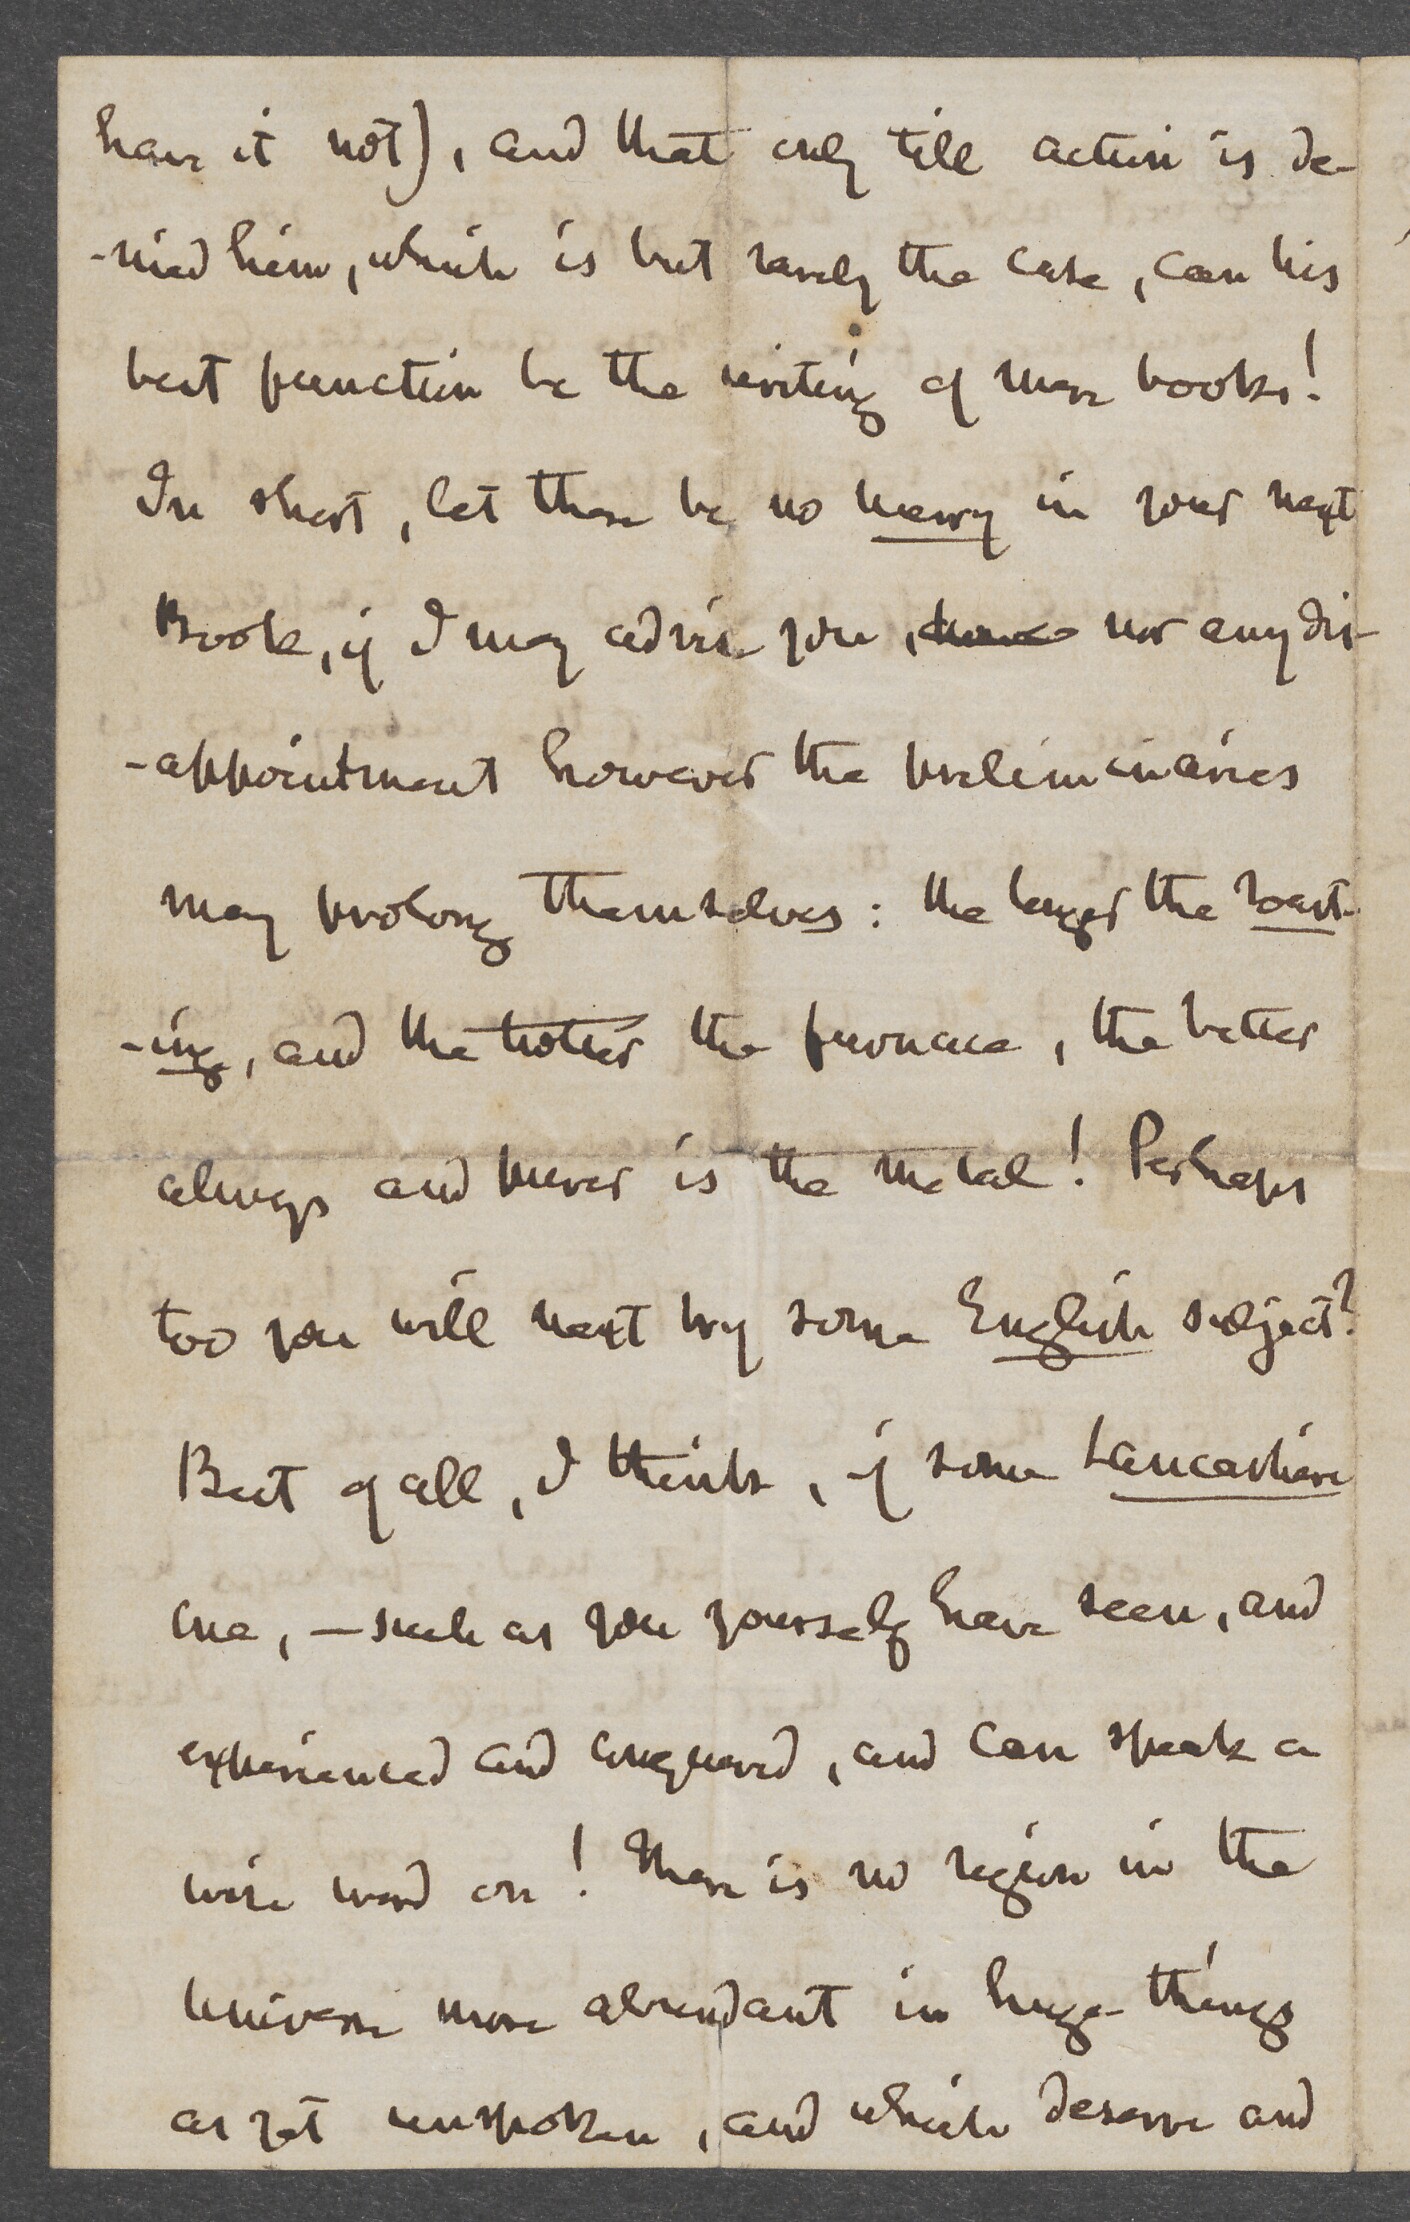 have it not), and that only till action is de-
-nied him, which is but rarely the case, can his
best function be the writing of mere books!
In short, let there be no hurry in your next
Book, if I may advise you, nor any dis-
-appointment however the preliminaries
may prolong themselves: the longer the roast-
-ing, and the hotter the furnace, the better
always and purer is the metal! Perhaps
too you will next try some English subject?
Best of all, I think, if some Lancashire
one, — such as you yourself have seen, and
experienced and conquered, and can speak a
wise word on! There is no region in the
Universe more abundant in huge things
as yet unspoken, and which deserve and